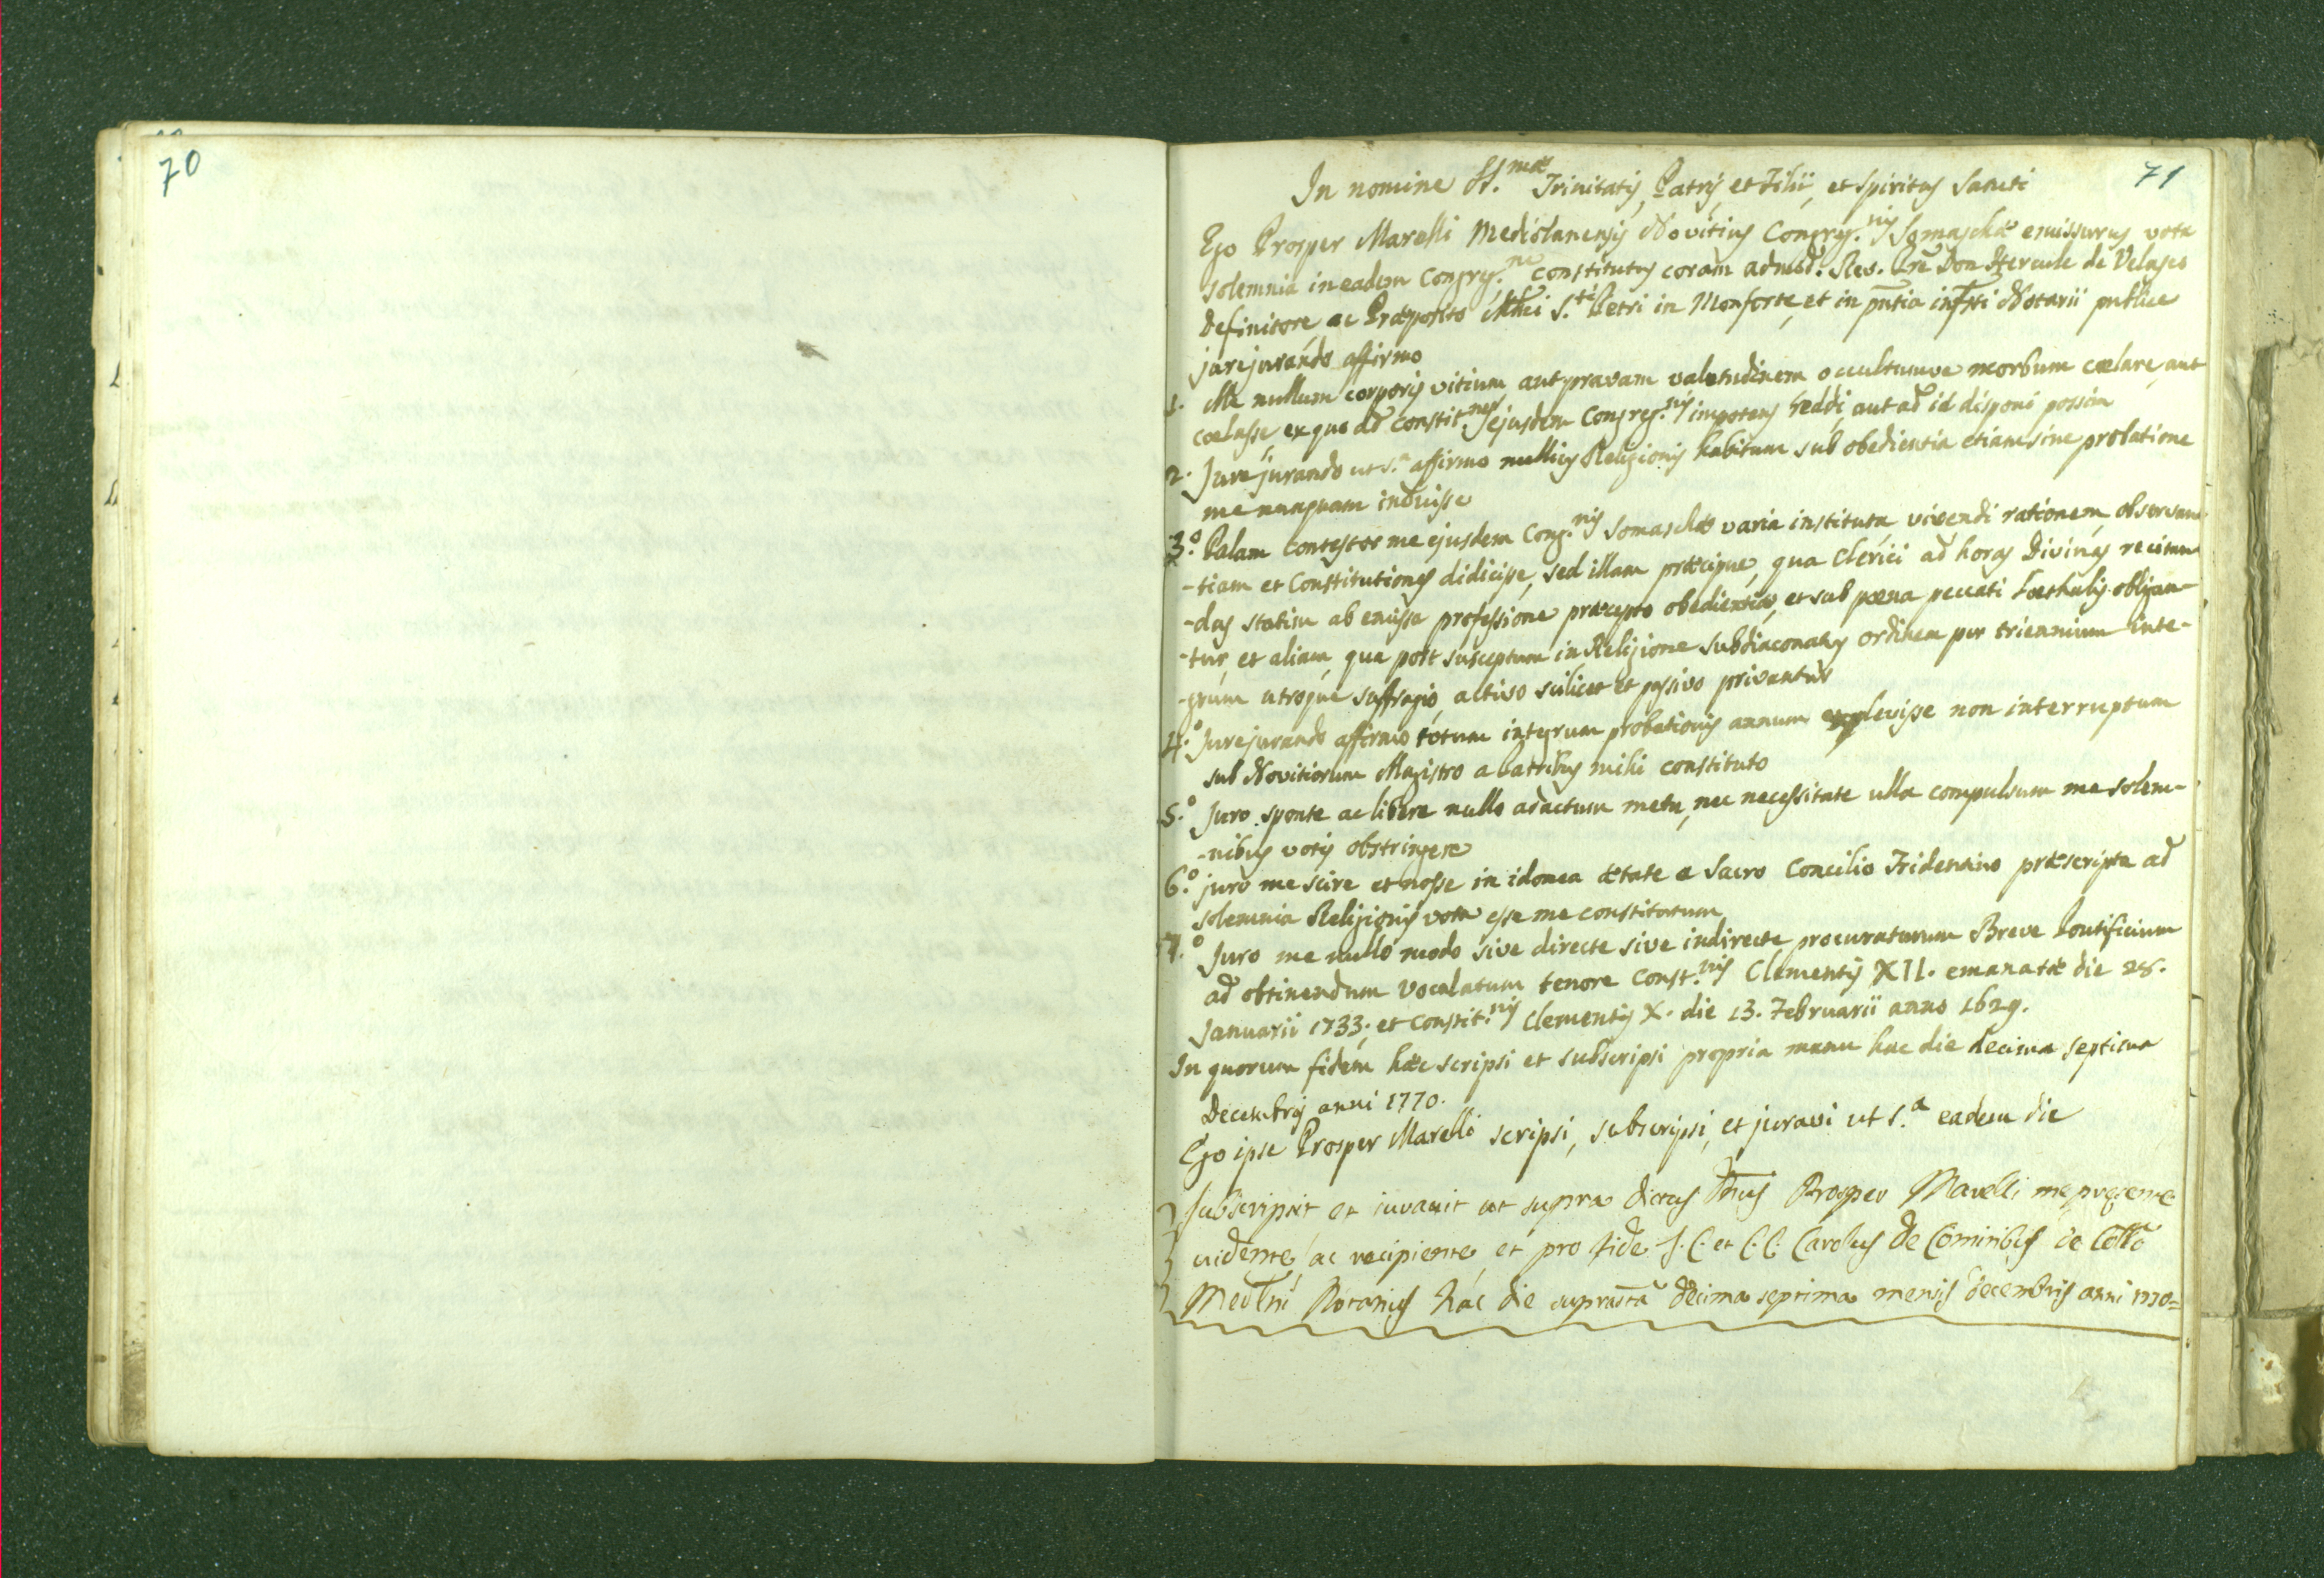 70
71
In nomine SS.mæ Trinitatis, Patris, et Filii, et Spiritus Sancti
Ego Prosper Marelli Mediolanensis Novitius Congreg.nis Somaschæ emissurus vota
solemnia in eadem Congreg.ne constitutus coram admod. Rev. Pre Don Hercule de Velasco
Definitore ac Præposito S.ti Petri in Monforte, et in pntia infrti Notarii publice
jurejurando affirmo
1. Me nullum corporis vitium aut pravam valetudinem occultumve morbum cœlare, aut
cœlasse, ex quo ad constit.nes ejusdem Congreg.nis impotens reddi, aut ad id disponi possim
2. Jurejurando ut s.a affirmo nullius Religionis habitum sub obedientia etiam sine probatione
me nunquam induisse
3.o Palam contestor me ejusdem Cong.nis Somaschæ varia instituta, vivendi rationem, observan-
-tiam et Constitutiones didicisse, sed illam præcipue, qua Clerici ad horas Divinas recitan-
-das statim ab emissa professione præcepto obedientiæ, et sub pœna peccati Loethalis obligan-
-tur, et aliam, qua post susceptum in Religione Subdiaconatus ordinem per triennium inte-
-grum utroque suffragio, activo scilicet et passivo privantur
4.o Jurejurando affirmo totum integrum probationis annum explevisse non interruptum
sub Novitiorum Magistro a Patribus mihi constituto
5.o Juro sponte ac libere nullo adactum metu, nec necessitate ulla compulsum me solem-
-nibus votis obstringere
6.o juro me scire et nosse in idonea ætate a Sacro Concilio Tridentino præscripta ad
solemnia Religionis vota esse me constitutum
7.o Juro me nullo modo sive directe sive indirecte procuraturum Breve Pontificium
ad obtinendum Vocalatum tenore Const.nis Clementis XII. emanatæ die 28.
Januarii 1733. et Constit.nis Clementis X. die 13. Februarii anno 1629.
In quorum fidem hæc scripsi et subscripsi propria manu hac die decima septima
Decembris anni 1770.
Ego ipse Prosper Marelli scripsi, subscripsi, et juravi ut s.a eadem die
Subscripsit et iuravit ut supra dictus Prosper Marelli me presente
vidente, ac recipiente, et pro fide J. C. et C. C. Carolus De Cominibus
Notarius hac die decima septima mensis decembris anni 1770=